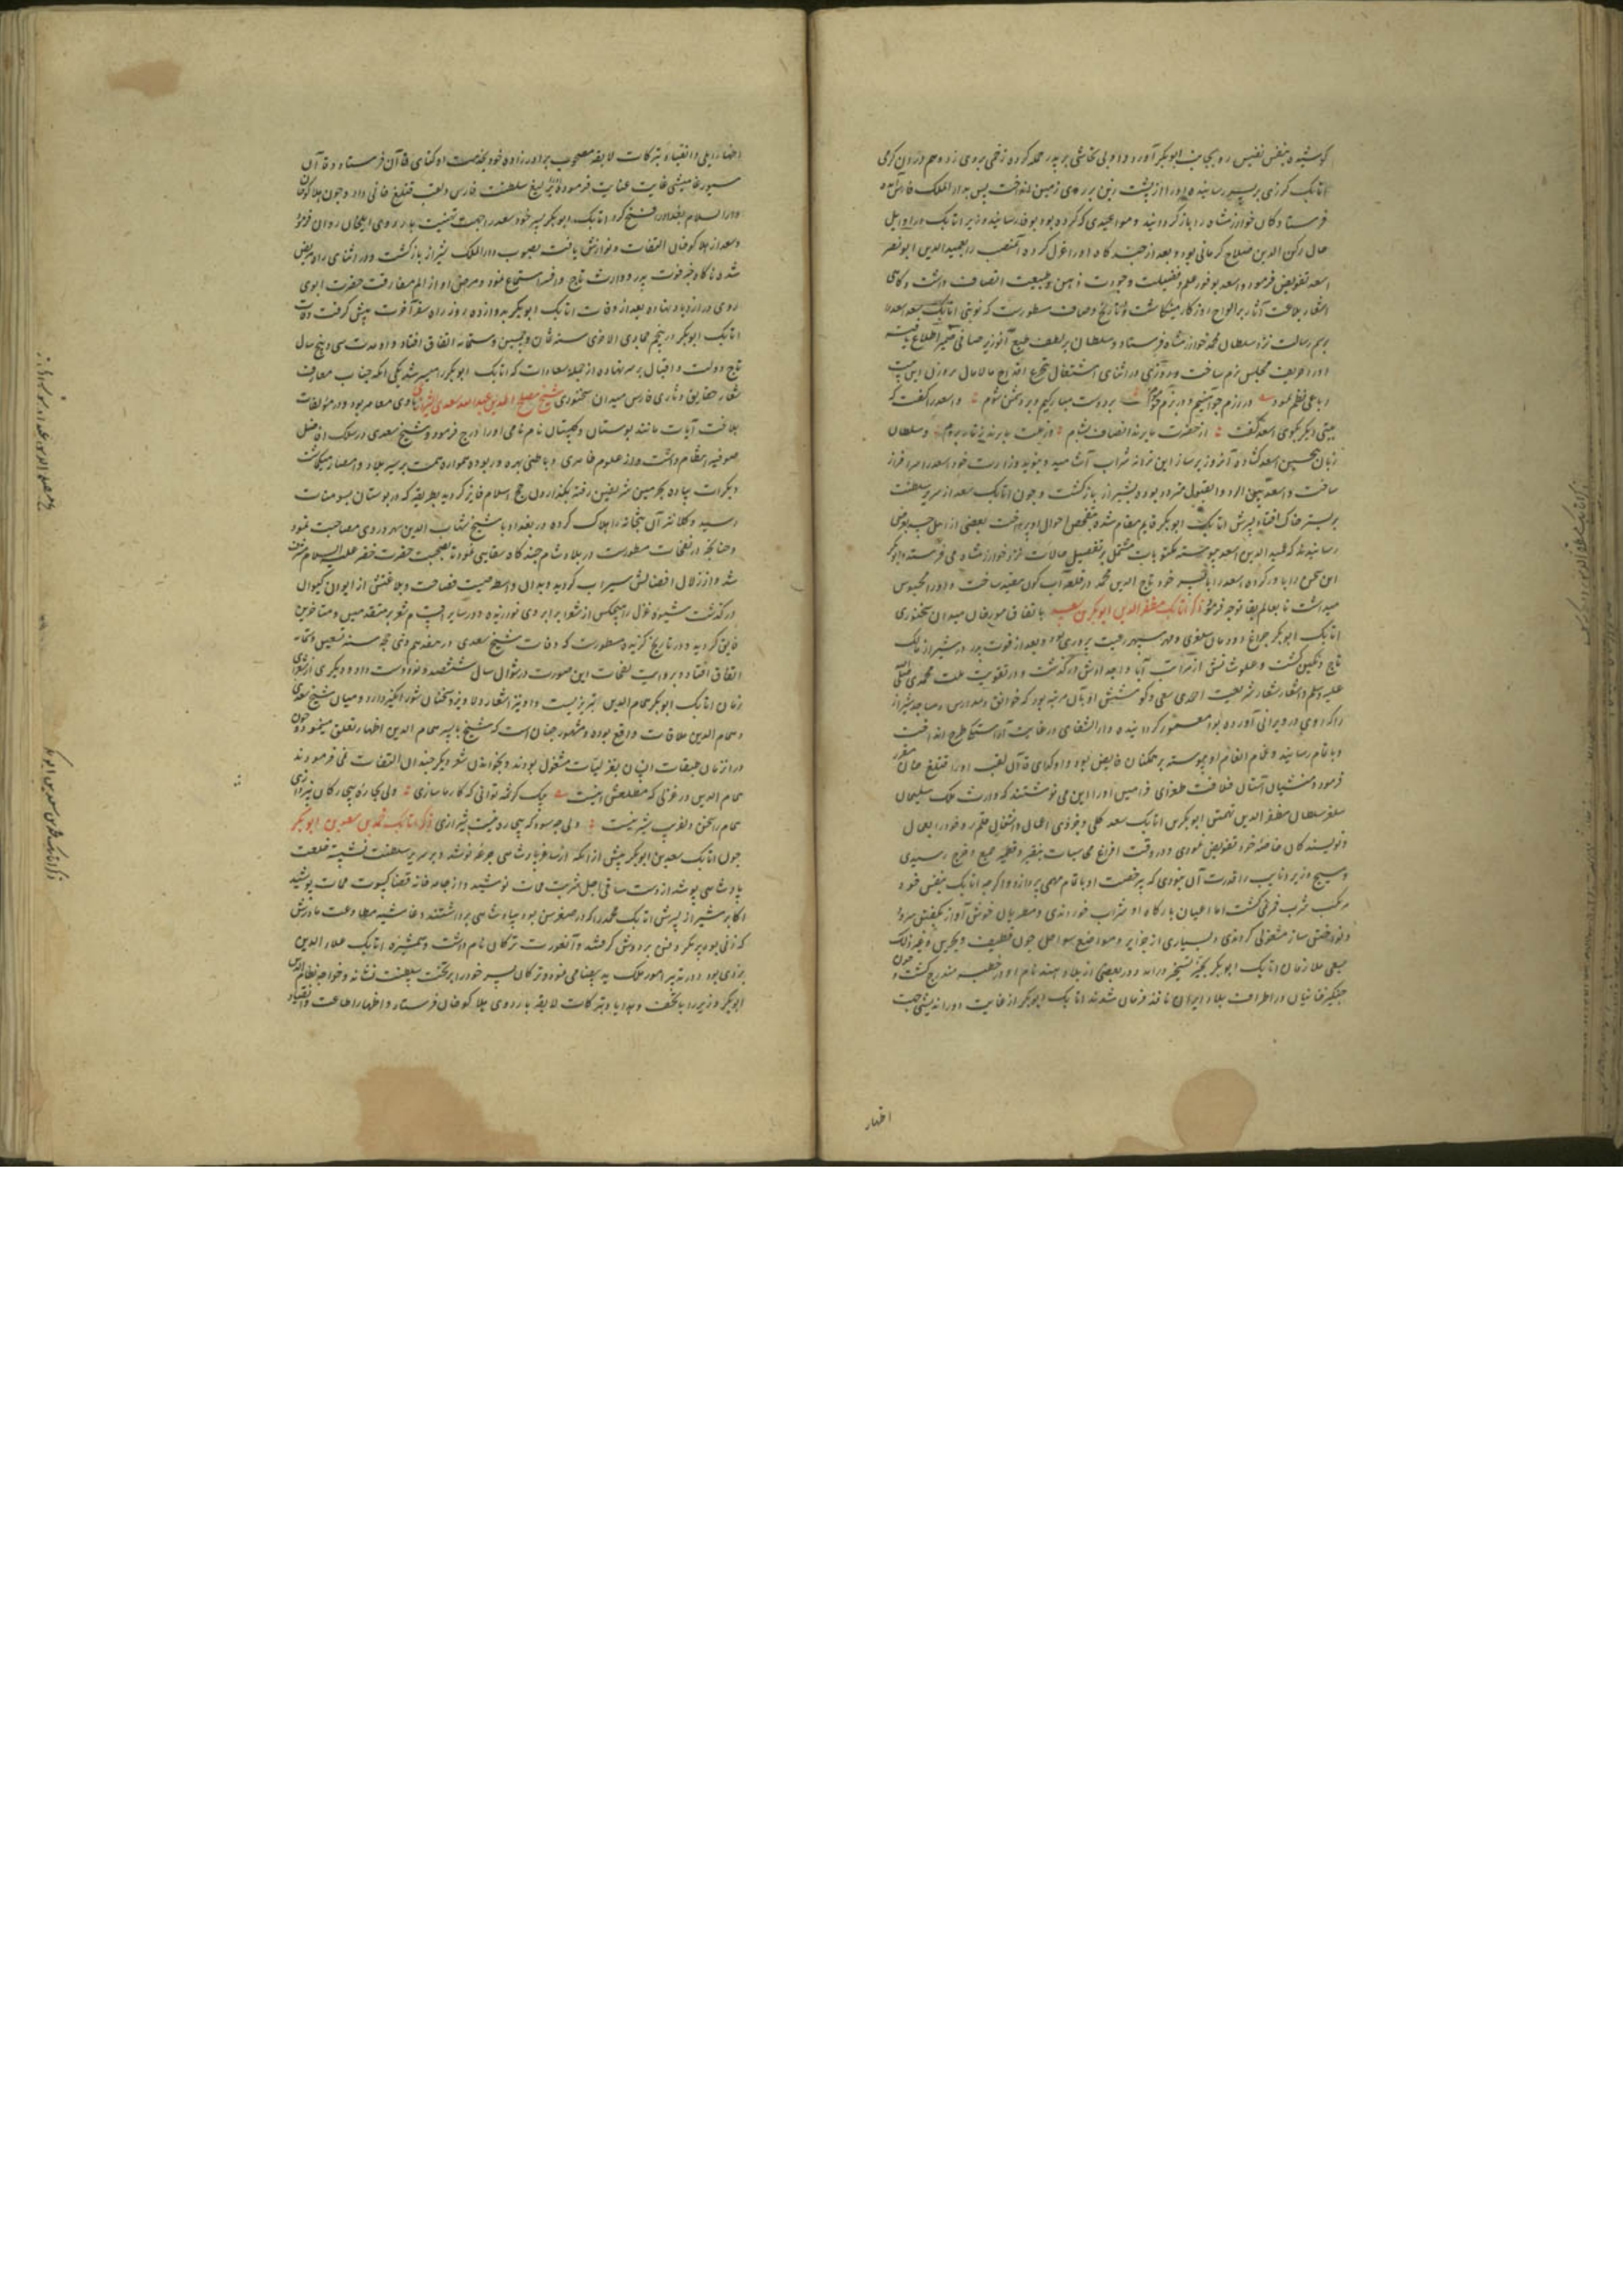 کوشیده بنفس نفیس رو بجانب ابوبکر آورد و او بی تحاشی بر پدر حمله کرده زخمی بر وی زد و هم در آن گرمی
اتابک گرزی بر پسر رسانیده او را از پشت زین بر روی زمین انداخت پس بدار الملک فارس
فرستادگان خوارزمشاه را باز گردانید و مواعیدی که کرده بود بوفا رسانید وزیر اتابک در اوایل
حال رکن الدین صلاح کرمانی بود و بعد از چند گاه او را عزل کرده آن منصب را بعمید الدین ابو نصر
اسعد تفویض فرمود و اسعد بوفور علم و فضیلت و جودت ذهن و طبیعت اتصاف داشت و گاهی
اشعار بلاغت آثار بر الواح روزگار مینگاشت و در تاریخ وصاف مسطورست که نوبتی اتابک سعد اسعد را
برسم رسالت نزد سلطان محمد خوارزمشاه فرستاد و سلطان بر لطف طبع آن وزیر صافی ضمیر اطلاع یافته
او را حریف مجلس بزم ساخت و روزی در اثنای اشتغال بتجرع اقداح مالامال
رباعی نظم نمود در رزم چو آهنیم و در بزم چو موم بر دوست مبارکیم و بر دشمن شوم و اسعد را گفت که
بیتی دیگر بگوی اسعد گفت از حضرت ما برند انصاف بشام وز هیبت ما برند زنار بروم و سلطان
زبان بتحسین اسعد گشاده آن روز بر ساز این ترانه شراب آشامید و بنوید وزارت خود اسعد را سرافراز
ساخت و اسعد بین الرد و القبول متردد بوده بشیراز باز گشت و چون اتابک سعد از سریر سلطنت
بر بستر خاک افتاد پسرش اتابک ابوبکر قایم مقام شده بتفحص احوال او پرداخت بعضی از اهل حسد بعرض
رسانیدند که عمید الدین اسعد پیوسته مکتوبات مشتمل بر تفصیل حالات نزد خوارزمشاه می فرستد و ابوبکر
این سخن را باور کرده اسعد را با پسر خود تاج الدین محمد در قلعه اشکنوان مقید ساخت و او را محبوس
میداشت تا بعالم بقا توجه فرمود ذکر اتابک مظفر الدین ابوبکر بن سعد باتفاق مورخان میدان سخنوری
اتابک ابوبکر چراغ دودمان سلغری و مهر سپهر رعیت پروری بود و بعد از فوت پدر در شیراز مالک
تاج و نگین گشت و علو شانش از مراتب آبا و اجدادش در گذشت و در تقویت ملت محمدی صلی الله
علیه و سلم و اشعار شعار شریعت احمدی سعی و کوشش او بآن مرتبه بود که خوانق و مدارس و مساجد شیراز
را که روی در ویرانی آورده بود معمور گردانیده و دار الشفای در غایت آراستگی طرح انداخت
و باتمام رسانید و غمام انعام او پیوسته بر همگنان فایض بود و اوکدای قاآن لقب او را قتلغ خان مقرر
فرمود و منشیان آستان خلافت طغرای فرامین او را این می نوشتند که وارث ملک سلیمان
سلغر سلطان مظفر الدین تهمتن ابوبکر بن اتابک سعد کلی و جزوی اعمال و اشغال قلمرو خود را بعمال
و نویسندگان خاصه خود تفویض نمودی و در وقت افراغ محاسبات بنقیر و قطمیر جمع و خرج رسیدی
و هیچ وزیر و نایب را قدرت آن نبودی که بی رخصت او باتمام مهمی پردازد و اگرچه اتابک بنفس خود
مرتکب شرب خمر نمی گشت اما اعیان بارگاه او شراب خوردندی و مطربان خوش آواز بگفتن سرود
و نواختن ساز مشغولی کردندی و بسیاری از جزایر و مواضع سواحل چون قطیف و بحرین و غیر ذلک
بسعی ملازمان اتابک ابوبکر بحیز تسخیر درآمد و در بعضی از بلاد هند نام او در خطبه مندرج گشت و چون
چنگیز خانیان در اطراف بلاد ایران نافذ فرمان شدند اتابک ابوبکر از غایت دوراندیشی جهت
اظهار
اظهار ایلی و انقیاد تبرکات لایقه مصحوب برادرزاده خود بخدمت اوکتای قاآن فرستاد و قاآن
سیورغامیشی غایت عنایت فرموده یرلیغ سلطنت فارس و لقب قتلغ خانی داد و چون هلاکو خان
دار السلام بغداد را فتح کرد اتابک ابوبکر پسر خود سعد را جهت تهنیت باردوی ایلخان روان فرمود
و سعد از هلاکو خان التفات و نوازش یافت بصوب دار الملک شیراز باز گشت و در اثنای راه مریض
شده ناگاه خبر فوت پدر و وارث تاج و افسر استماع نمود و مرض او از الم مفارقت حضرت ابوی
روی در ازدیاد نهاده بعد از وفات اتابک ابوبکر بدوازده روز راه سفر آخرت پیش گرفت وفات
اتابک ابوبکر در پنجم جمادی الاخری سنه ثمان و خمسین و ستمائه اتفاق افتاد و او مدت سی و پنج سال
تاج دولت و اقبال بر سر نهاده از جمله سعادات که اتابک ابوبکر را میسر شد یکی آنکه جناب معارف
شعار حقایق دثار فارس میدان سخنوری شیخ مصلح الدین عبد الله سعدی شیرازی با وی معاصر بود و در مولفات
بلاغت آیات مانند بوستان و گلستان نام نامی او را درج فرمود و شیخ سعدی در سلک افاضل
صوفیه انتظام داشت و از علوم ظاهری و باطنی بهره ور بوده همواره همت بر سیر بلاد و امصار میگماشت
و بکرات پیاده بحرمین شریفین رفته بگذاردن حج اسلام فایز گردید بطریقه که در بوستان بسومنات
رسید و کلانتر آن بتخانه را هلاک کرده در بغداد با شیخ شهاب الدین سهروردی مصاحبت نمود
و چنانچه در نفحات مسطورست در بلاد شام چند گاه سقایی نمود تا بصحبت حضرت خضر علیه السلام مشرف
شد و از زلال افضالش سیراب گردید و بدان واسطه صیت فصاحت و بلاغتش از ایوان کیوان
درگذشت شیوه غزل را هیچکس از شعرا برابر وی نورزیده و در سایر اقسام شعر بر متقدمین و متاخرین
فایق گردیده و در تاریخ گزیده مسطورست که وفات شیخ سعدی در هفدهم ذی حجه سنه تسعین و ستمائه
اتفاق افتاد و بروایت نفحات این صورت در شوال سال ششصد و نود و دست داد و دیگری از شعرای
زمان اتابک ابوبکر همام الدین تبریزیست و او نیز اشعار دلاویز و سخنان شورانگیز دارد و میان شیخ سعدی
و همام الدین ملاقات واقع بوده و مشهور چنان است که شیخ با پسر همام الدین اظهار تعلق مینمود و چون
در آن زمان طبقات انسان بغزلیات مشغول بودند و بخواندن شعر دیگر چندان التفات نمی فرمودند
همام الدین در غزلی که مطلعش اینست بیک کرشمه توانی که کار ما سازی ولی بچاره بیچارگان نپردازی
همام را سخن دلفریب و شیرینست ولی چه سود که بیچاره نیست شیرازی ذکر اتابک محمد بن سعد بن ابوبکر
چون اتابک سعد بن ابوبکر پیش از آنکه از ساغر پادشاهی جرعه نوشد و بر سریر سلطنت نشسته خلعت
پادشاهی پوشد از دست ساقی اجل شربت ممات نوشید و از جامه خانه قضا کسوت ممات پوشید
اکابر شیراز پسرش اتابک محمد را که در صغر سن بود بپادشاهی برداشتند و غاشیه مطاوعت مادرش
که زنی بود پر مکر و فن بر دوش گرفتند و آن عورت ترکان نام داشت و همشیره اتابک علاء الدین
یزدی بود و در تدبیر امور ملک ید بیضا می نمود و ترکان پسر خود را بر تخت سلطنت نشانده و خواجه نظام الدین
ابوبکر وزیر را با تحف و هدایا و تبرکات لایقه باردوی هلاکو خان فرستاد و اظهار اطاعت و انقیاد